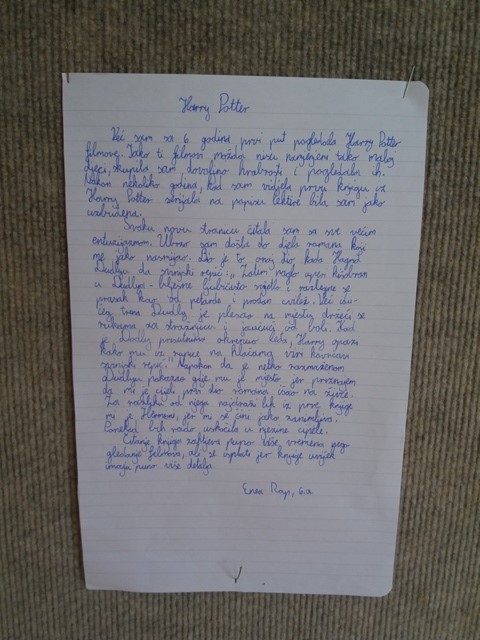 Harry Potter
Već sam sa 6 godina prvi put pogledala Harry Potter
filmove. Iako ti filmovi možda nisu namijenjeni tako maloj
djeci, skupila sam dovoljno hrabrosti i pogledala ih.
Nakon nekoliko godina, kad sam vidjela prvu knjigu iz
Harry Potter serijala na popisu lektire bila sam jako
uzbuđena.
Svaku novu stranicu čitala sam sa sve većim
entuzijazmom. Ubrzo sam došla do dijela romana koji
me jako nasmijao. Bio je to onaj dio kada Hagrid
Dudleyu da svinjski repić. „ Zatim naglo uperi kišobran
u Dudleya - bljesne ljubičasto svjetlo i razlegne se
prasak kao od petarde i prodoran cvilež. Već idu-
ćeg trena Dudley je plesao na mjestu držeći se
rukama za stražnjicu i jaučući od boli. Kad
je Dudley preokrenuo leđa, Harry opazi
kako mu iz rupice na hlačama viri kovrčavi
svinjski repić." Napokon da je netko razmaženom
Dudleyu pokazao gdje mu je mjesto jer priznajem
da mi je cijeli prvi dio romana išao na živce.
Za razliku od njega najdraži lik iz prve knjige
mi je Hermiona, jer mi se čini jako zanimljiva.
Ponekad bih rado uskočila u njezine cipele.
Čitanje knjiga zahtjeva puno više vremena neg
gledanje filmova, ali se isplati jer knjige uvijek
imaju puno više detalja.
6.a